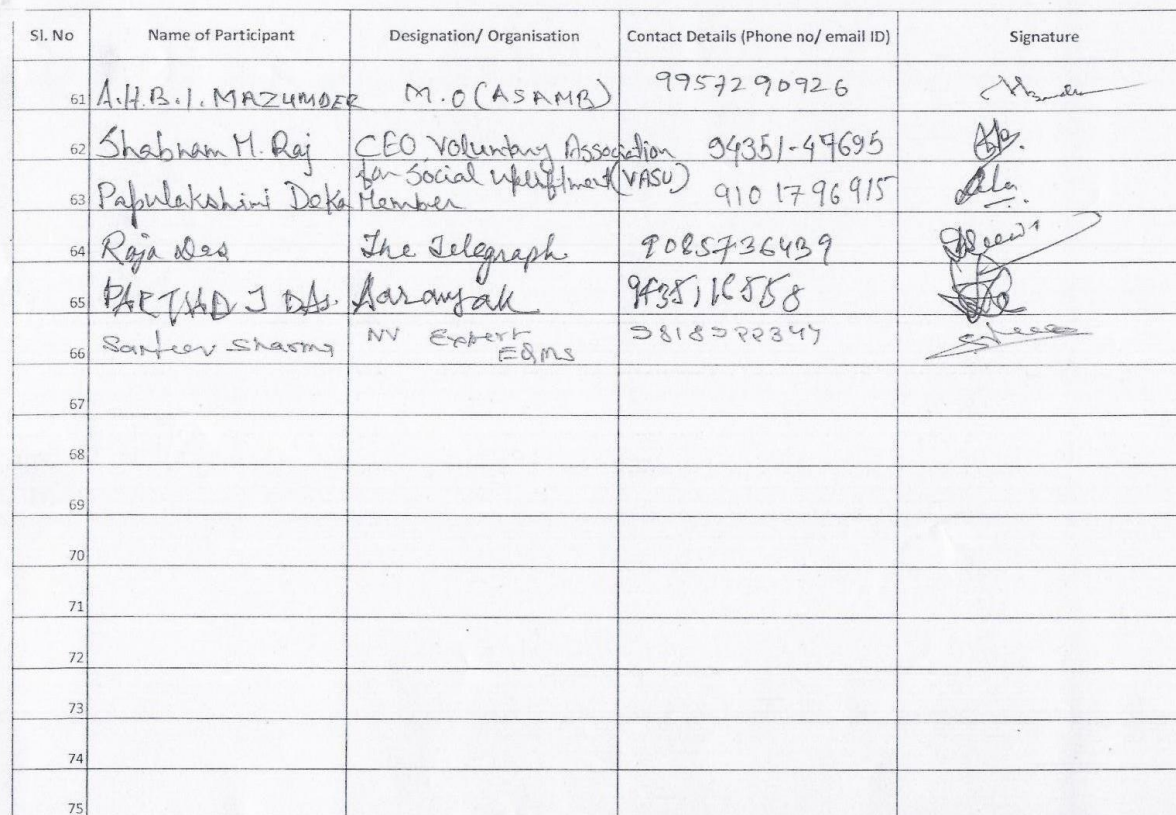 Sl. No Name of Participant Designation/ Organisation Contact Details (Phone no/ email ID) Signature
61 A.H.B.I. MAZUMDER M.O (ASAMB) 9957290926
62 Shabnam M. Raj CEO Voluntary Association 94351-47695
for Social Upliftment (VASU)
63 Papulakshimi Deka Member 9101796915
64 Raja Das The Telegraph 9085736439
65 PARTHA J DAS. Aaranyak
66 Sanjeev Sharma NV Expert
EQMS
67
68
69
70
71
72
73
74
75